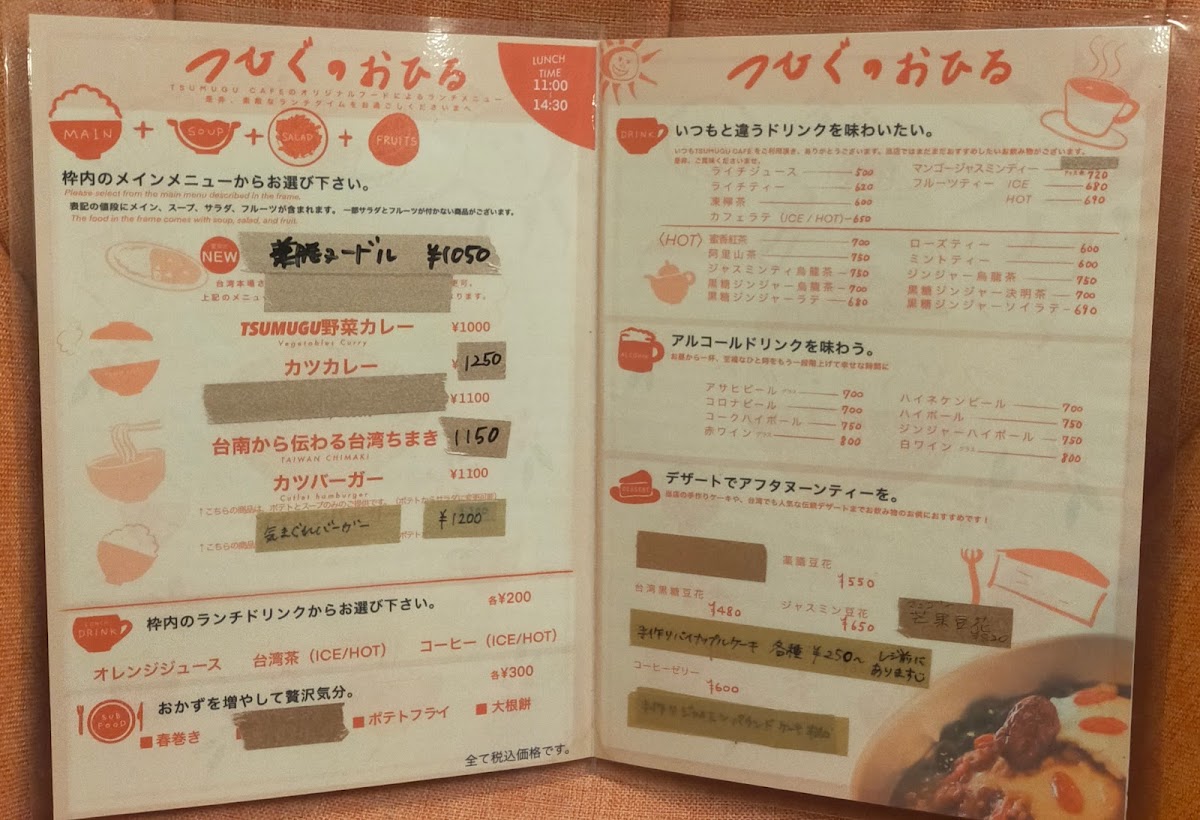 つむぐのおひる
TSUMUGU CAFEのオリジナルフードによるランチメニュー
是非、素敵なランチタイムをお過ごしくださいませ
LUNCH
TIME
11:00
-
14:30
MAIN + SOUP + SALAD + FRUITS
枠内のメインメニューからお選び下さい。
Please select from the main menu described in the frame.
表記の値段にメイン、スープ、サラダ、フルーツが含まれます。 一部サラダとフルーツが付かない商品がございます。
The food in the frame comes with soup, salad, and fruit.
NEW
薬膳ヌードル ¥1050
台湾本場
上記のメニュー
TSUMUGU野菜カレー ¥1000
Vegetables Curry
カツカレー 1250
¥1100
台南から伝わる台湾ちまき 1150
TAIWAN CHIMAKI
カツバーガー ¥1100
Cutlet hamburger
↑こちらの商品は、ポテトとスープのみのご提供です。
気まぐれバーガー ¥1200
↑こちらの商品
LUNCH DRINK
枠内のランチドリンクからお選び下さい。 各¥200
オレンジジュース 台湾茶（ICE/HOT） コーヒー（ICE/HOT）
SUB FOOD
おかずを増やして贅沢気分。 各¥300
■春巻き ■ポテトフライ ■大根餅
全て税込価格です。
つむぐのおひる
DRINK
いつもと違うドリンクを味わいたい。
いつもTSUMUGU CAFEをご利用頂き、ありがとうございます。当店ではまだまだおすすめしたいお飲み物がございます。
是非、ご賞味くださいませ。
ライチジュース 500
ライチティー 620
凍檸茶 600
カフェラテ（ICE / HOT） 650
マンゴージャスミンティー 720
フルーツティー ICE 680
HOT 690
〈HOT〉
蜜香紅茶 700
阿里山茶 750
ジャスミンティ烏龍茶 750
黒糖ジンジャー烏龍茶 700
黒糖ジンジャーラテ 680
ローズティー 600
ミントティー 600
ジンジャー烏龍茶 750
黒糖ジンジャー決明茶 700
黒糖ジンジャーソイラテ 690
ALCOHOL
アルコールドリンクを味わう。
お昼から一杯、至福なひと時をもう一段階上げて幸せな時間に
アサヒビール グラス 700
コロナビール 700
コークハイボール 750
赤ワイン グラス 800
ハイネケンビール 700
ハイボール 750
ジンジャーハイボール 750
白ワイン グラス 800
DESSERT
デザートでアフタヌーンティーを。
当店の手作りケーキや、台湾でも人気な伝統デザートまでお飲み物のお供におすすめです！
薬膳豆花
¥550
台湾黒糖豆花
¥480
ジャスミン豆花
¥650
芒果豆花
手作りパイナップルケーキ 各種 ¥250〜 レジ前に
あります
コーヒーゼリー
¥600
手作りジャスミンパウンドケーキ